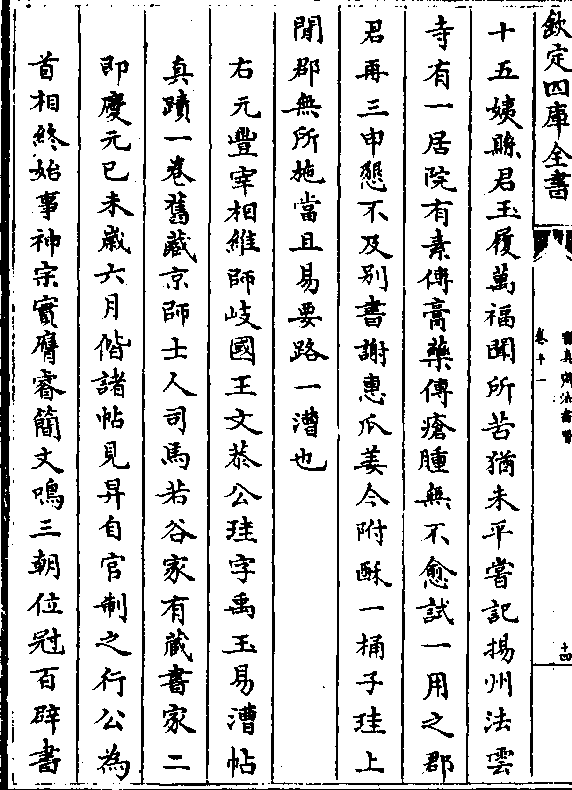 欽定四庫全書
卷十一
十四
十五姨縣君玉履萬福聞所苦猶未平嘗記揚州法雲
寺有一居院有素傳膏藥傅瘡腫無不愈試一用之郡
君再三申懇不及别書謝惠瓜姜今附酥一桶子珪上
聞郡無所施當且易要路一漕也
右元豐宰相維師岐國王文恭公珪字禹玉易漕帖
真蹟一卷舊藏京師士人司馬若谷家有藏書家二
即慶元已未歲六月偕諸帖見昇自官制之行公為
首相終始事神宗實膺睿簡文鳴三朝位冠百辟書